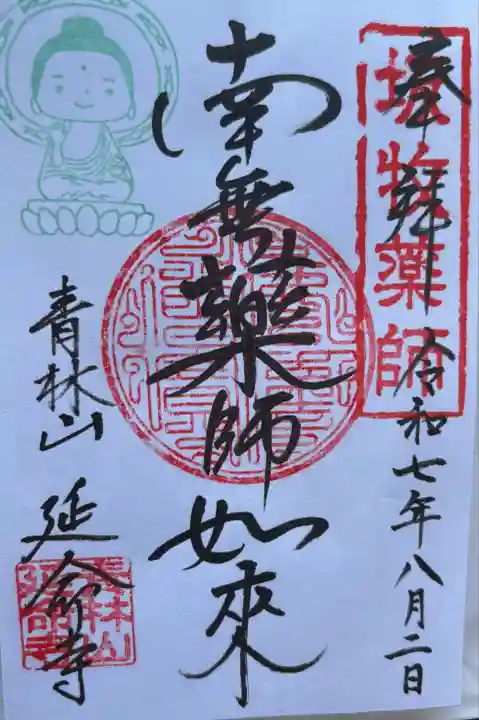 奉拝 令和七年八月二日
腫物薬師
南無薬師如来
青林山 延命寺